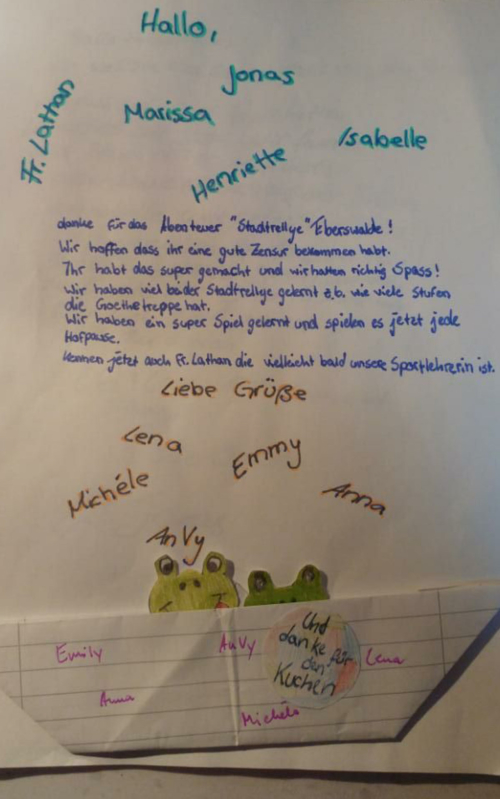 Hallo,
Jonas
Fr. Lathan
Marissa
Isabelle
Henriette
danke für das Abenteuer "Stadtrellye" Eberswalde!
Wir hoffen dass ihr eine gute Zensur bekommen habt.
Ihr habt das super gemacht und wir hatten richtig Spass!
Wir haben viel bei der Stadtrellye gelernt z.b. wie viele Stufen
die Goethetreppe hat.
Wir haben ein super Spiel gelernt und spielen es jetzt jede
Hofpause.
kennen jetzt auch Fr. Lathan die vielleicht bald unsere Sportlehrerin ist.
Liebe Grüße
Lena
Emmy
Michéle
Anna
AnVy
Und
danke für
den
Kuchen
Emily
AnVy
Lena
Anna
Michéle